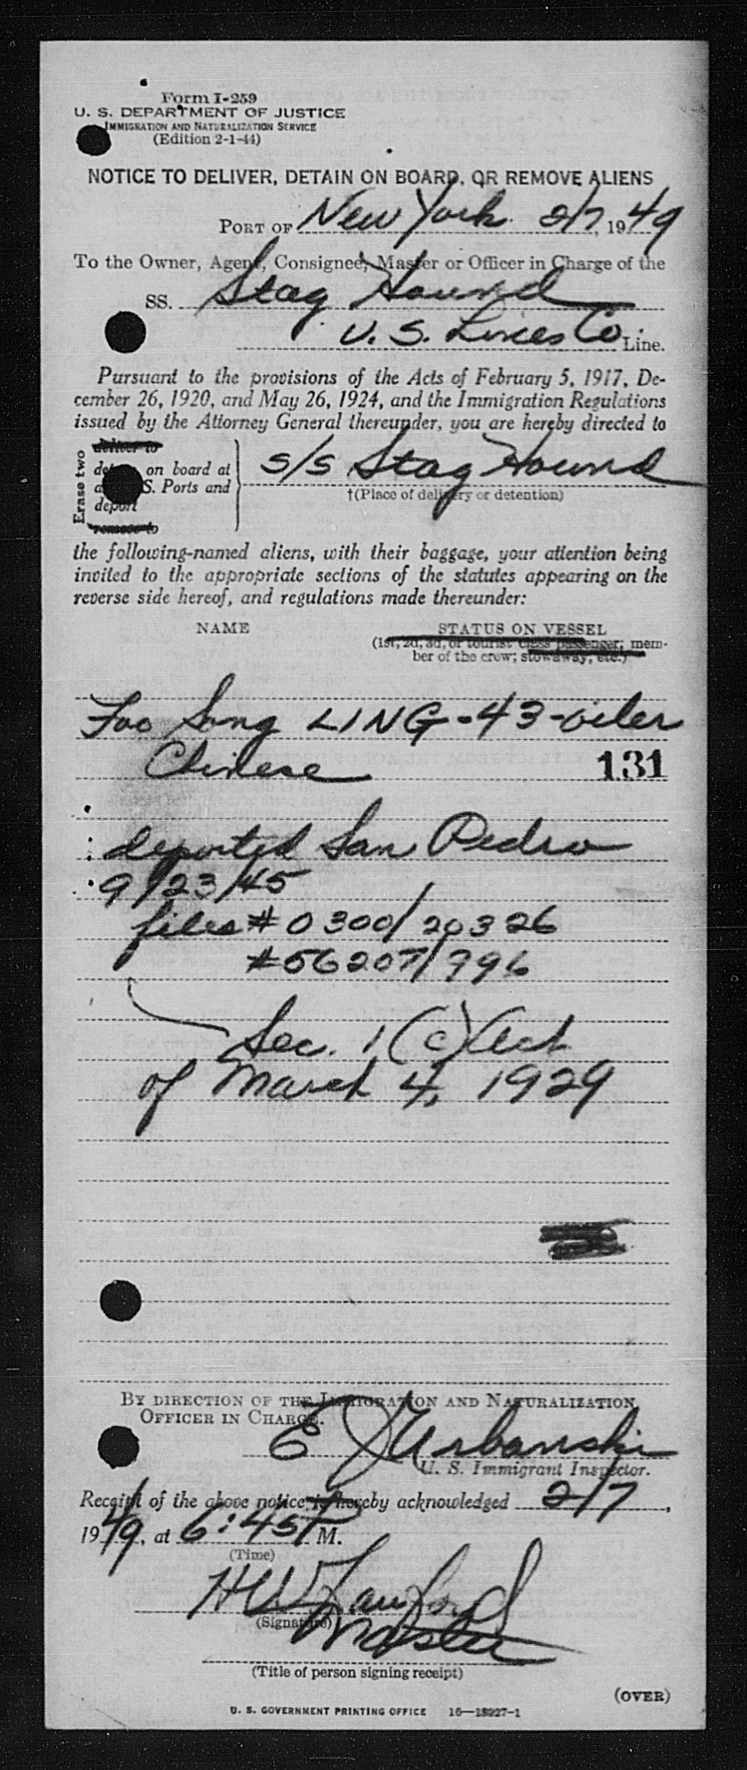 Form I-259
U. S. DEPARTMENT OF JUSTICE
IMMIGRATION AND NATURALIZATION SERVICE
(Edition 2-1-44)
NOTICE TO DELIVER, DETAIN ON BOARD, OR REMOVE ALIENS
PORT OF New York 2/7, 1949
To the Owner, Agent, Consignee, Master or Officer in Charge of the
SS. Stag Hound
U. S. Lines Co. Line.
Pursuant to the provisions of the Acts of February 5, 1917, De-
cember 26, 1920, and May 26, 1924, and the Immigration Regulations
issued by the Attorney General thereunder, you are hereby directed to
Erase two
deliver to
on board at
S. Ports and
deport
remove to
s/s Stag Hound
†(Place of delivery or detention)
the following-named aliens, with their baggage, your attention being
invited to the appropriate sections of the statutes appearing on the
reverse side hereof, and regulations made thereunder:
NAME STATUS ON VESSEL
(1st, 2d, 3d, or tourist class passenger; mem-
ber of the crew; stowaway, etc.)
Foo Song LING - 43 - oiler
Chinese 131
deported San Pedro
9/23/45
files # 0300/20326
# 56207/796
Sec. 1 (c) Act
of March 4, 1929
BY DIRECTION OF THE IMMIGRATION AND NATURALIZATION
OFFICER IN CHARGE.
E J Urbanski
U. S. Immigrant Inspector.
Receipt of the above notice is hereby acknowledged 2/7,
1949, at 6:45 P M.
(Time)
(Signature)
Master
(Title of person signing receipt)
(OVER)
U. S. GOVERNMENT PRINTING OFFICE 16—18927-1